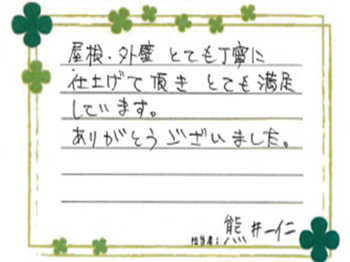 屋根・外壁 とても丁寧に
仕上げて頂き とても満足
しています。
ありがとうございました。
担当者: 熊井仁